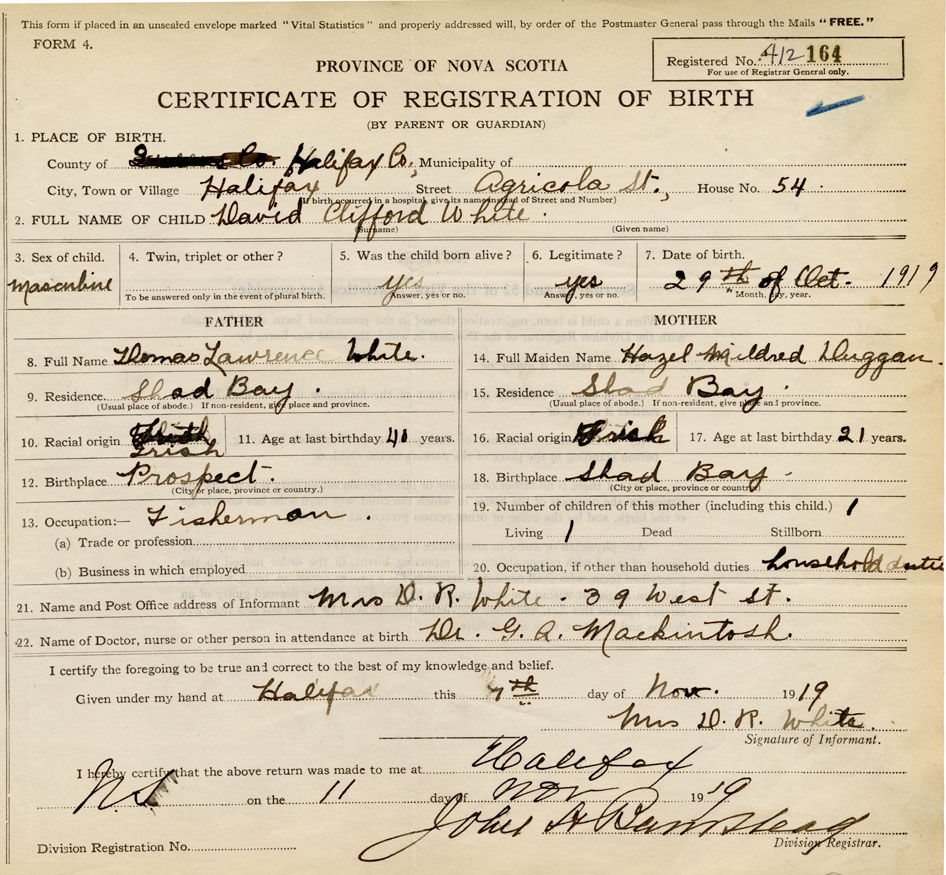 This form if placed in an unsealed envelope marked "Vital Statistics" and properly addressed will, by order of the Postmaster General pass through the Mails "FREE."
FORM 4.
Registered No. 412 164
For use of Registrar General only.
PROVINCE OF NOVA SCOTIA
CERTIFICATE OF REGISTRATION OF BIRTH
(BY PARENT OR GUARDIAN)
1. PLACE OF BIRTH.
County of Halifax Co., Municipality of
City, Town or Village Halifax Street Agricola St., House No. 54
(If birth occurred in a hospital, give its name instead of Street and Number)
2. FULL NAME OF CHILD David Clifford White
(Surname) (Given name)
3. Sex of child. 4. Twin, triplet or other? 5. Was the child born alive? 6. Legitimate? 7. Date of birth.
masculine yes yes 29th of Oct. 1919
To be answered only in the event of plural birth. Answer, yes or no. Answer, yes or no. Month, day, year.
FATHER MOTHER
8. Full Name Thomas Lawrence White. 14. Full Maiden Name Hazel Mildred Duggan.
9. Residence. Shad Bay. 15. Residence Shad Bay.
(Usual place of abode.) If non-resident, give place and province. (Usual place of abode.) If non-resident, give place and province.
10. Racial origin Irish 11. Age at last birthday 41 years. 16. Racial origin Irish 17. Age at last birthday 21 years.
12. Birthplace Prospect. 18. Birthplace Shad Bay
(City or place, province or country.) (City or place, province or country)
13. Occupation:— Fisherman. 19. Number of children of this mother (including this child.) 1
(a) Trade or profession Living 1 Dead Stillborn
(b) Business in which employed 20. Occupation, if other than household duties household duties
21. Name and Post Office address of Informant Mrs D. R. White. 39 West St.
22. Name of Doctor, nurse or other person in attendance at birth Dr. G. A. Mackintosh.
I certify the foregoing to be true and correct to the best of my knowledge and belief.
Given under my hand at Halifax this 7th day of Nov. 1919
Mrs D. R. White.
Signature of Informant.
I hereby certify that the above return was made to me at Halifax
N.S on the 11 day of Nov 1919
John H
Division Registration No. Division Registrar.